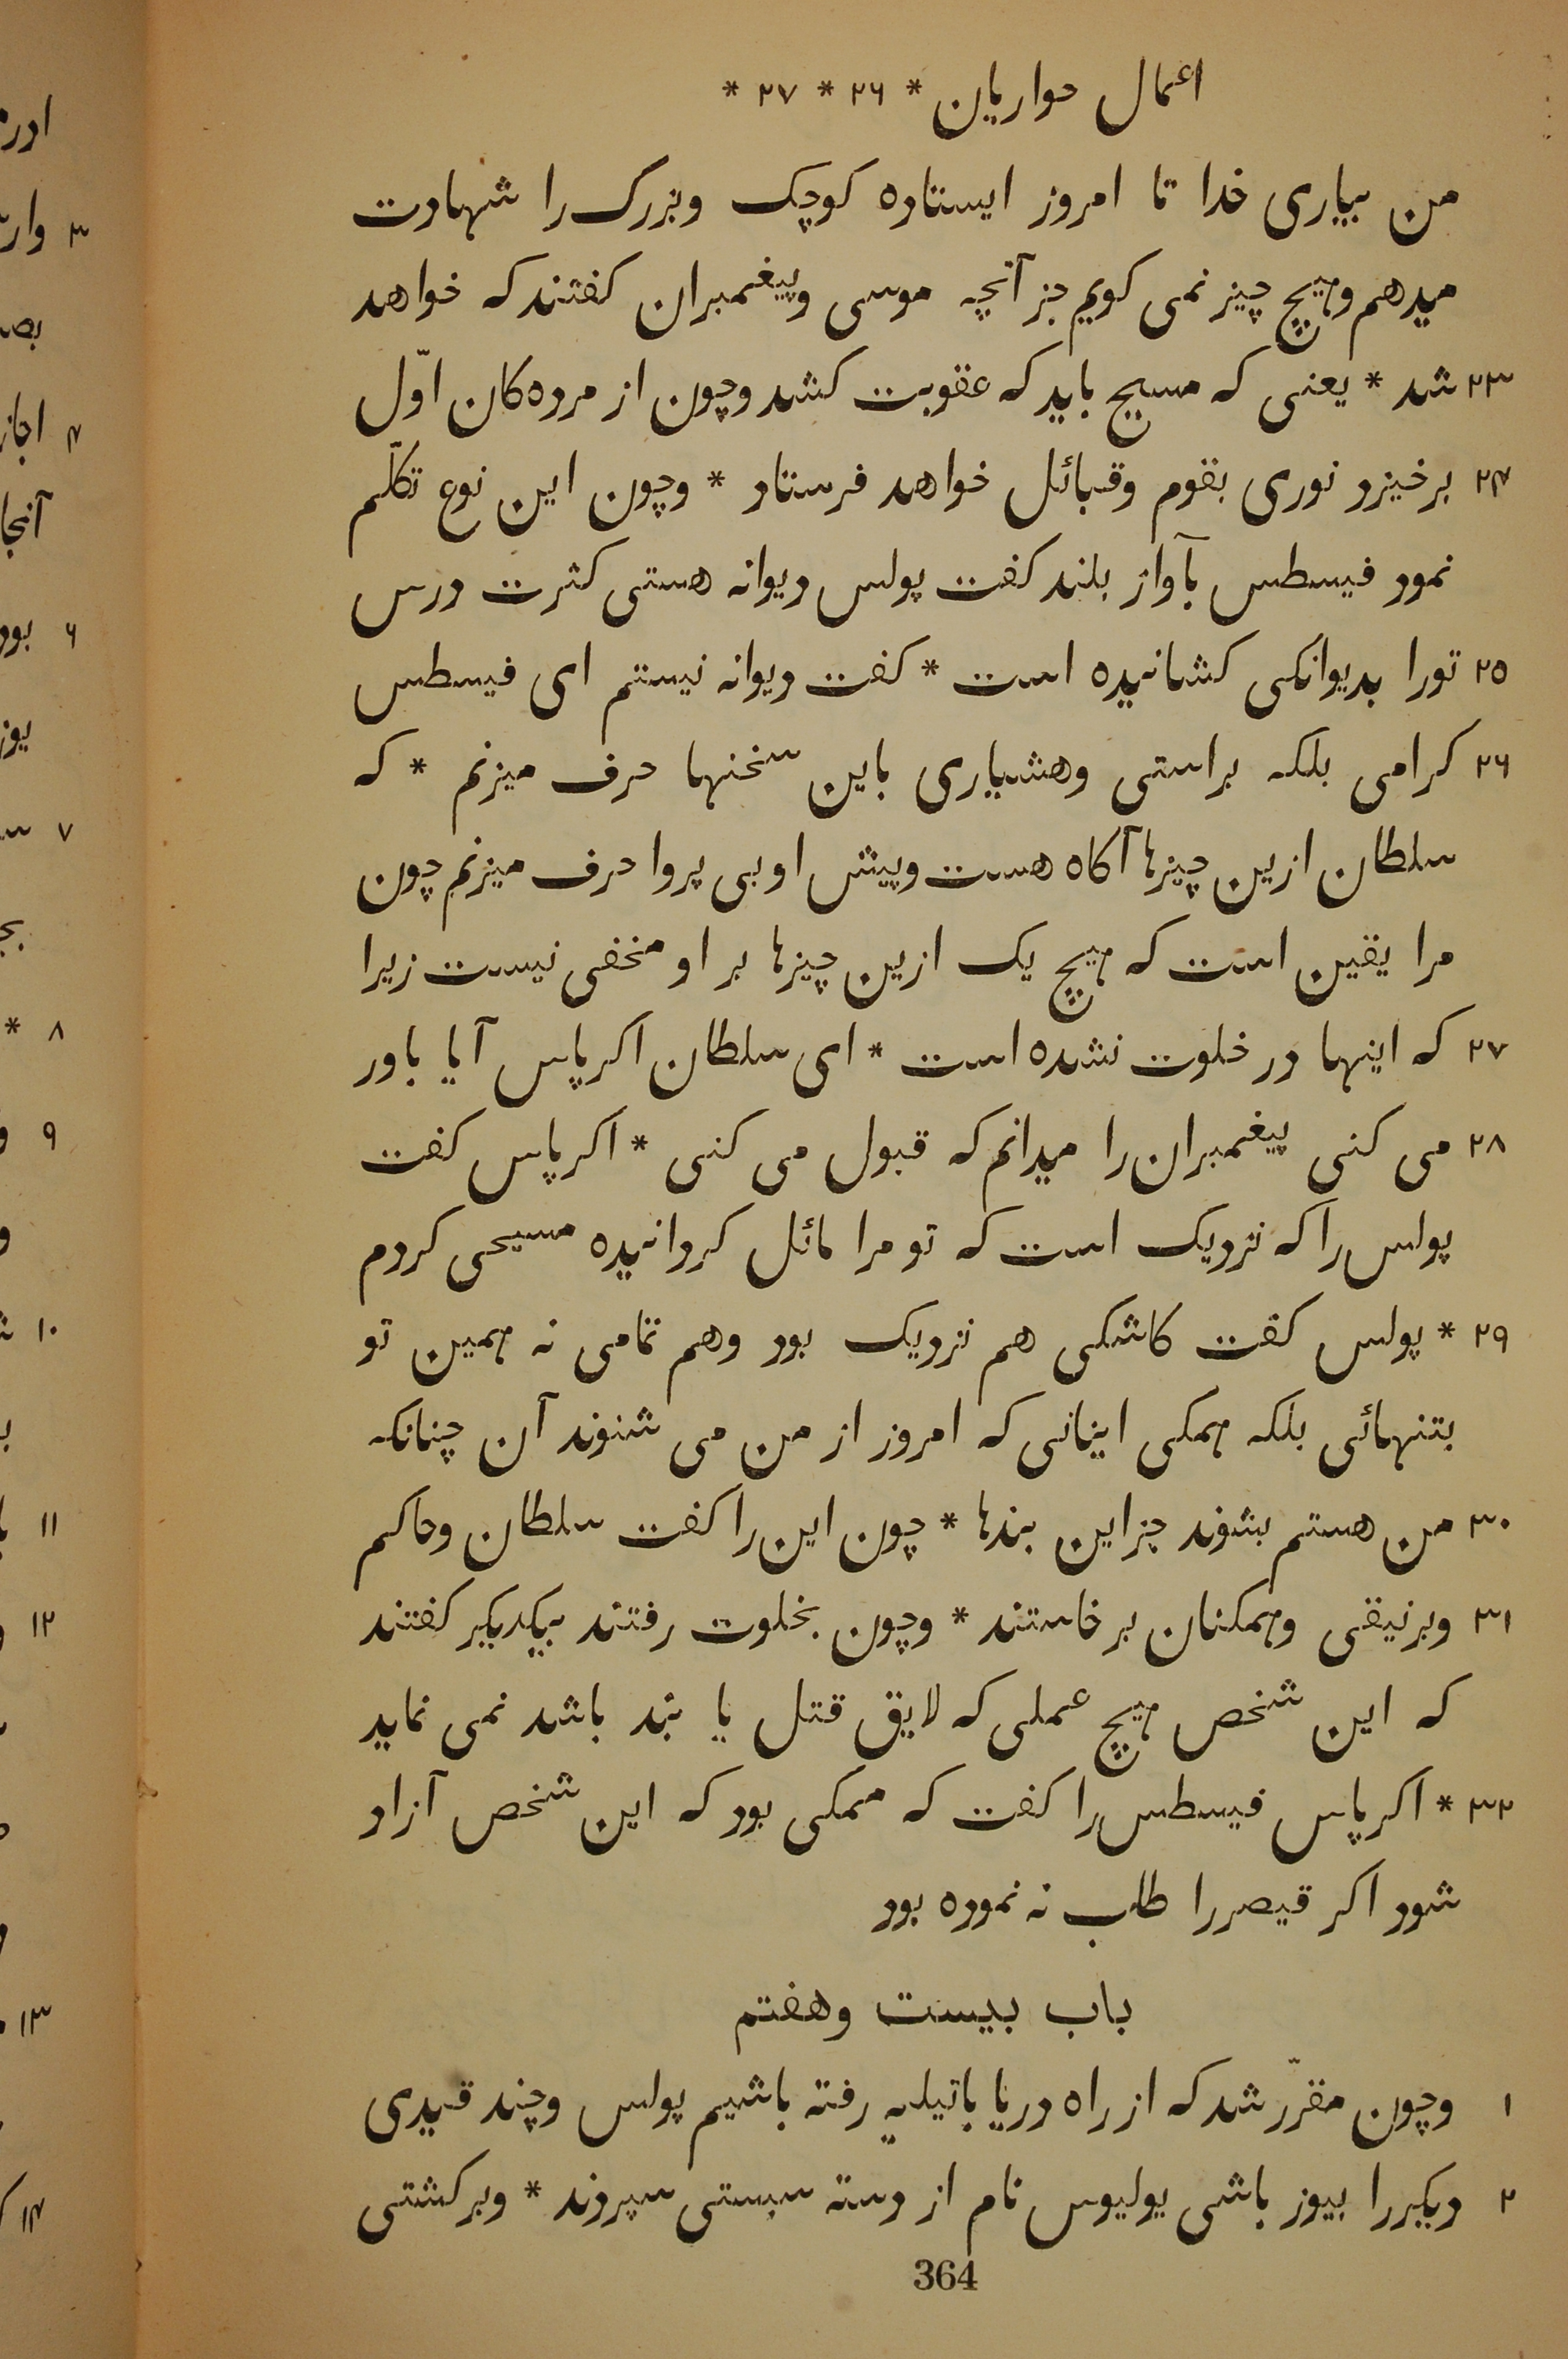 اعمال حواریان * ۲۶ * ۲۷ *
من بیاری خدا تا امروز ایستاده کوچک وبزرک را شهادت
میدهم وهیچ چیز نمی کویم جز آنچه موسی وپیغمبران کفتند که خواهد
۲۳ شد * یعنی که مسیح باید که عقوبت کشد وچون از مرده‌کان اوّل
۲۴ برخیزد نوری بقوم وقبائل خواهد فرستاد * وچون این نوع تکلّم
نمود فیسطس بآواز بلند کفت پولس دیوانه هستی کثرت درس
۲۵ تورا بدیوانکی کشانیده است * کفت دیوانه نیستم ای فیسطس
۲۶ کرامی بلکه براستی وهشیاری باین سخنها حرف میزنم * که
سلطان ازین چیزها آکاه هست وپیش او بی پروا حرف میزنم چون
مرا یقین است که هیچ یک ازین چیزها بر او مخفی نیست زیرا
۲۷ که اینها در خلوت نشده است * ای سلطان اکرپاس آیا باور
۲۸ می کنی پیغمبران را میدانم که قبول می کنی * اکرپاس کفت
پولس را که نزدیک است که تو مرا مائل کردانیده مسیحی کردم
۲۹ * پولس کفت کاشکی هم نزدیک بود وهم تمامی نه همین تو
بتنهائی بلکه همکی اینانی که امروز از من می شنوند آن چنانکه
۳۰ من هستم بشوند جز این بندها * چون این را کفت سلطان وحاکم
۳۱ وبرنیقی وهمکنان برخاستند * وچون بخلوت رفتند بیکدیکر کفتند
که این شخص هیچ عملی که لایق قتل یا بند باشد نمی نماید
۳۲ * اکرپاس فیسطس را کفت که ممکی بود که این شخص آزاد
شود اکر قیصر را طلب نه نموده بود
باب بیست وهفتم
۱ وچون مقرّر شد که از راه دریا باتیلیه رفته باشیم پولس وچند قیدی
۲ دیکر را بیوز باشی یولیوس نام از دسته سبستی سپردند * وبر کشتی
364